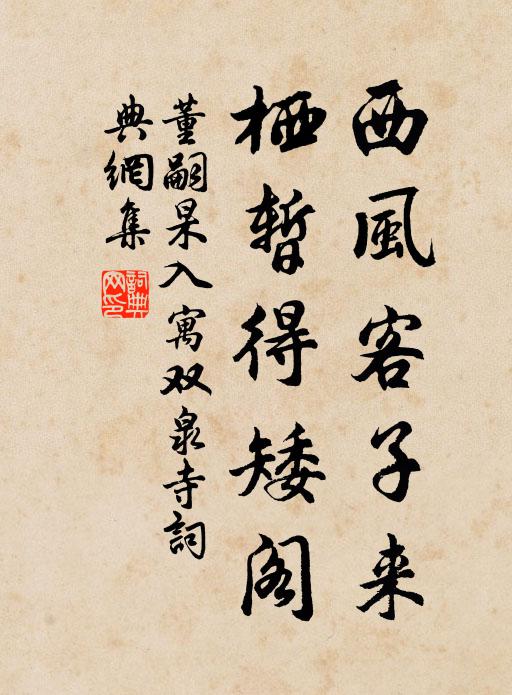 西風客子来
栖暫得矮阁
董嗣杲入寓双泉寺詞
典網集
詞典网印